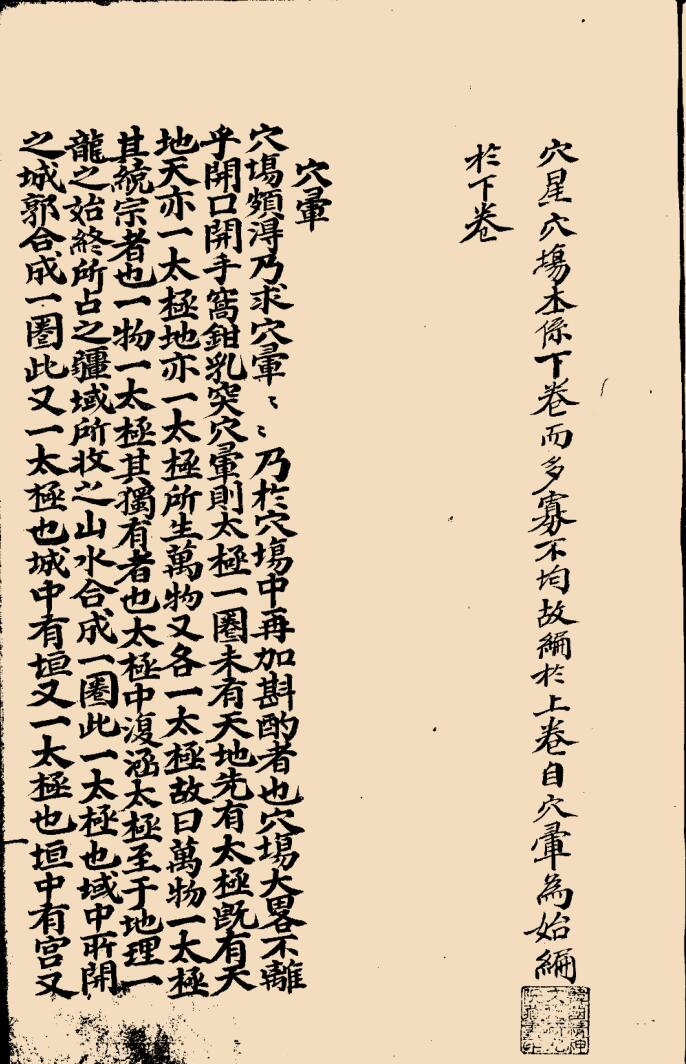 穴星穴塲本係下卷而多寡不均故編於上卷自穴暈為始編
於下卷
穴暈
穴塲頗淂乃求穴暈〻〻乃於穴塲中再加斟酌者也穴塲大畧不離
乎開口開手窩鉗乳突穴暈則太極一圈未有天地先有太極旣有天
地天亦一太極地亦一太極所生萬物又各一太極故曰萬物一太極
其統宗者也一物一太極其獨有者也太極中復涵太極至于地理一
龍之始終所占之疆域所收之山水合成一圈此一太極也域中所開
之城郭合成一圈此又一太極也城中有垣又一太極也垣中有宮又